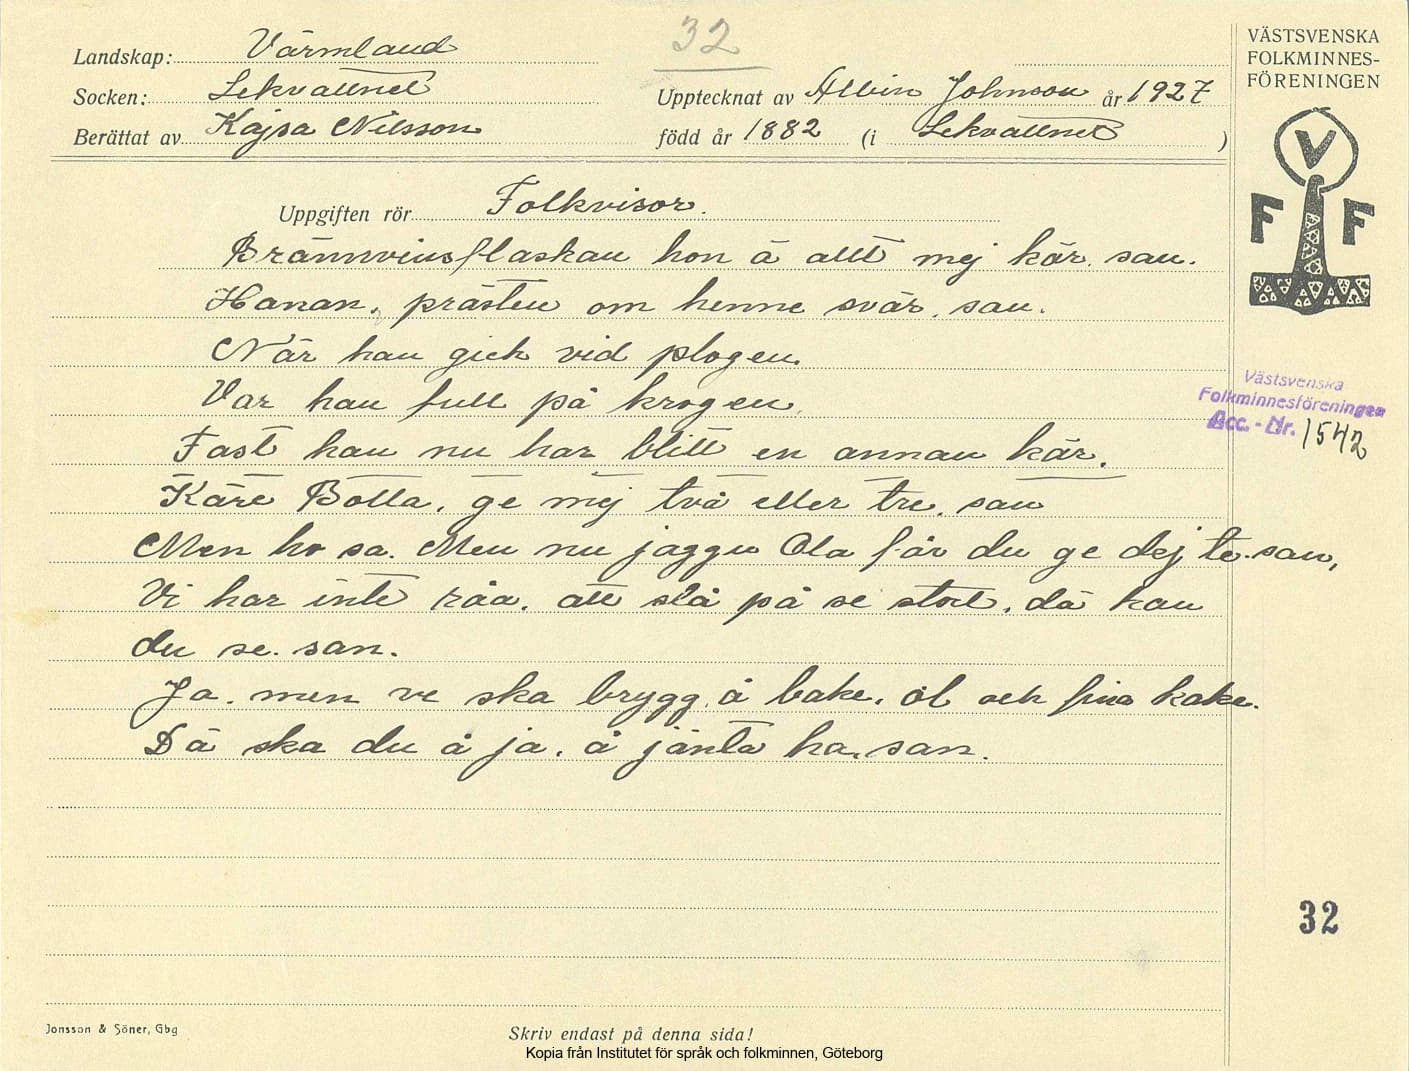 32
Landskap: Värmland
Socken: Lekvattnet
Upptecknat av Albin Johnson år 1927
Berättat av Kajsa Nilsson
född år 1882 (i Lekvattnet)
VÄSTSVENSKA
FOLKMINNES-
FÖRENINGEN
V
F F
Uppgiften rör Folkvisor.
Brännvinsflaskan hon ä allt mej kär. san.
Hanan, prästen om henne svär. san.
När han gick vid plogen.
Var han full på krogen.
Fast han nu har blitt en annan kär.
Käre Botta, ge mej två eller tre. san
Men ho sa. Men nu jaggu Ola får du ge dej te. san,
Vi har inte råa. att slå på se stort. dä kan
du se. san.
Ja. men ve ska brygg å bake. öl och fina kake.
Dä ska du å ja. å jänta ha. san.
Västsvenska
Folkminnesföreningen
Acc. - Nr. 1542
32
Jonsson & Söner, Gbg
Skriv endast på denna sida!
Kopia från Institutet för språk och folkminnen, Göteborg